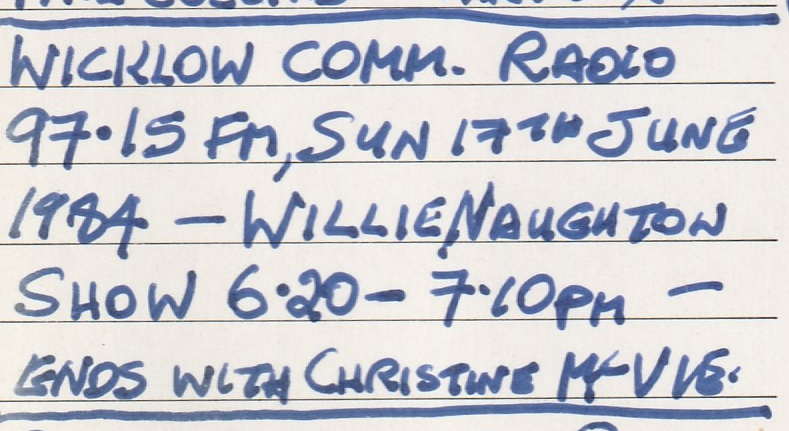 WICKLOW COMM. RADIO
97.15 FM, SUN 17TH JUNE
1984 – WILLIE NAUGHTON
SHOW 6.20 – 7.10PM –
ENDS WITH CHRISTINE McVIE.